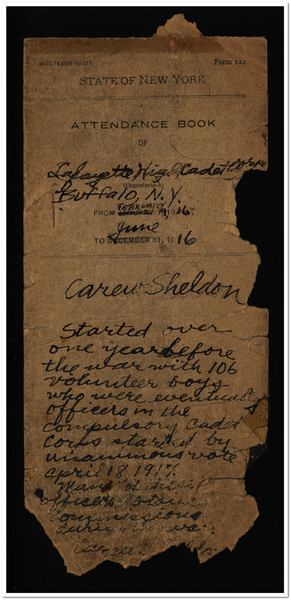 Form 122
STATE OF NEW YORK
ATTENDANCE BOOK
OF
Lafayette High Cadet Corps
(Organization)
Buffalo, N.Y.
FROM 1916
June
TO DECEMBER 31, 1916
Carew Sheldon
Started over
one year before
the war with 106
volunteer boys
who were eventually
officers in the
compulsory cadet
corps started by
unanimous vote
april 18, 1917.
Many of these
officers
commissions